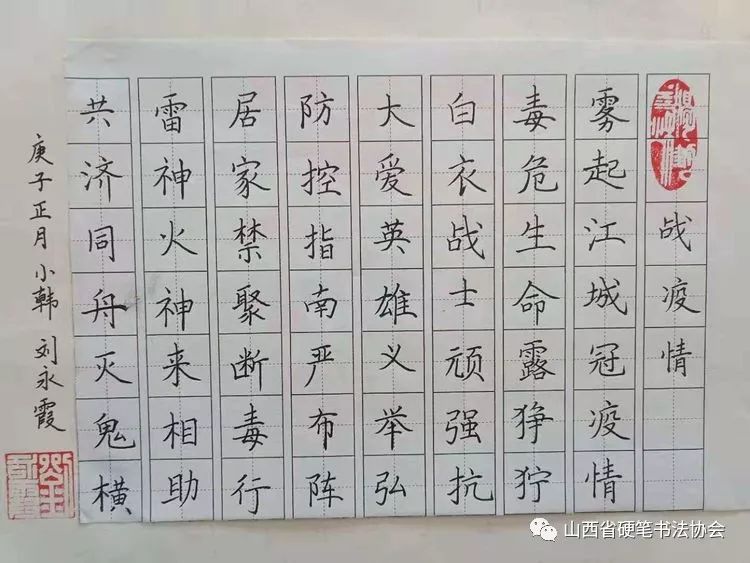 战疫情
雾起江城冠疫情
毒危生命露狰狞
白衣战士顽强抗
大爱英雄义举弘
防控指南严布阵
居家禁聚断毒行
雷神火神来相助
共济同舟灭鬼横
庚子正月 小韩 刘永霞
山西省硬笔书法协会